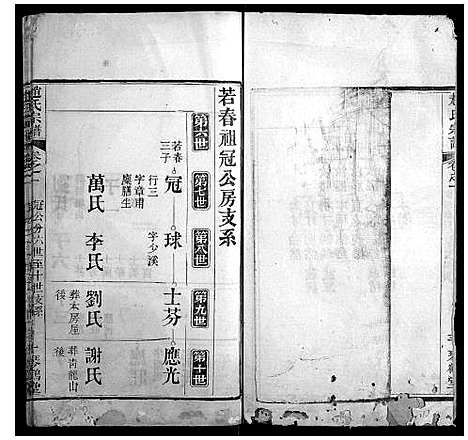 若春祖冠公房支系
第六世
第七世
第八世
第九世
第十世
若春
三子
冠
球
士芬
應光
行三
字章甫
廩膳生
字少溪
萬氏
李氏
劉氏
謝氏
葬本房屋
後
葬靑龍山
後
趙氏宗譜
卷之一
冠公分六世至十世支系
琴鶴堂
趙氏宗譜